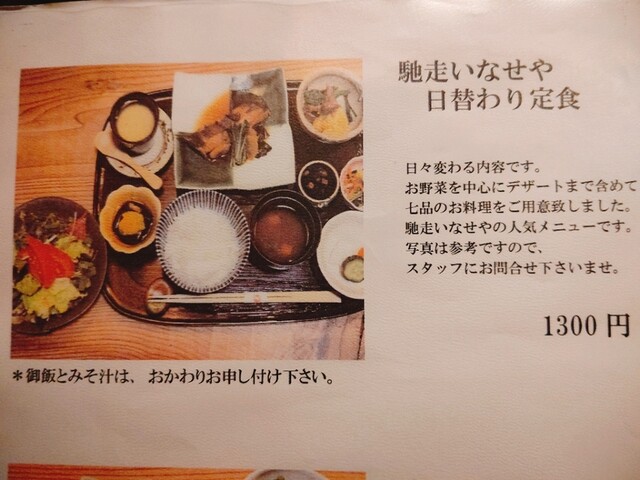 馳走いなせや
日替わり定食
日々変わる内容です。
お野菜を中心にデザートまで含めて
七品のお料理をご用意致しました。
馳走いなせやの人気メニューです。
写真は参考ですので、
スタッフにお問合せ下さいませ。
1300 円
＊御飯とみそ汁は、おかわりお申し付け下さい。